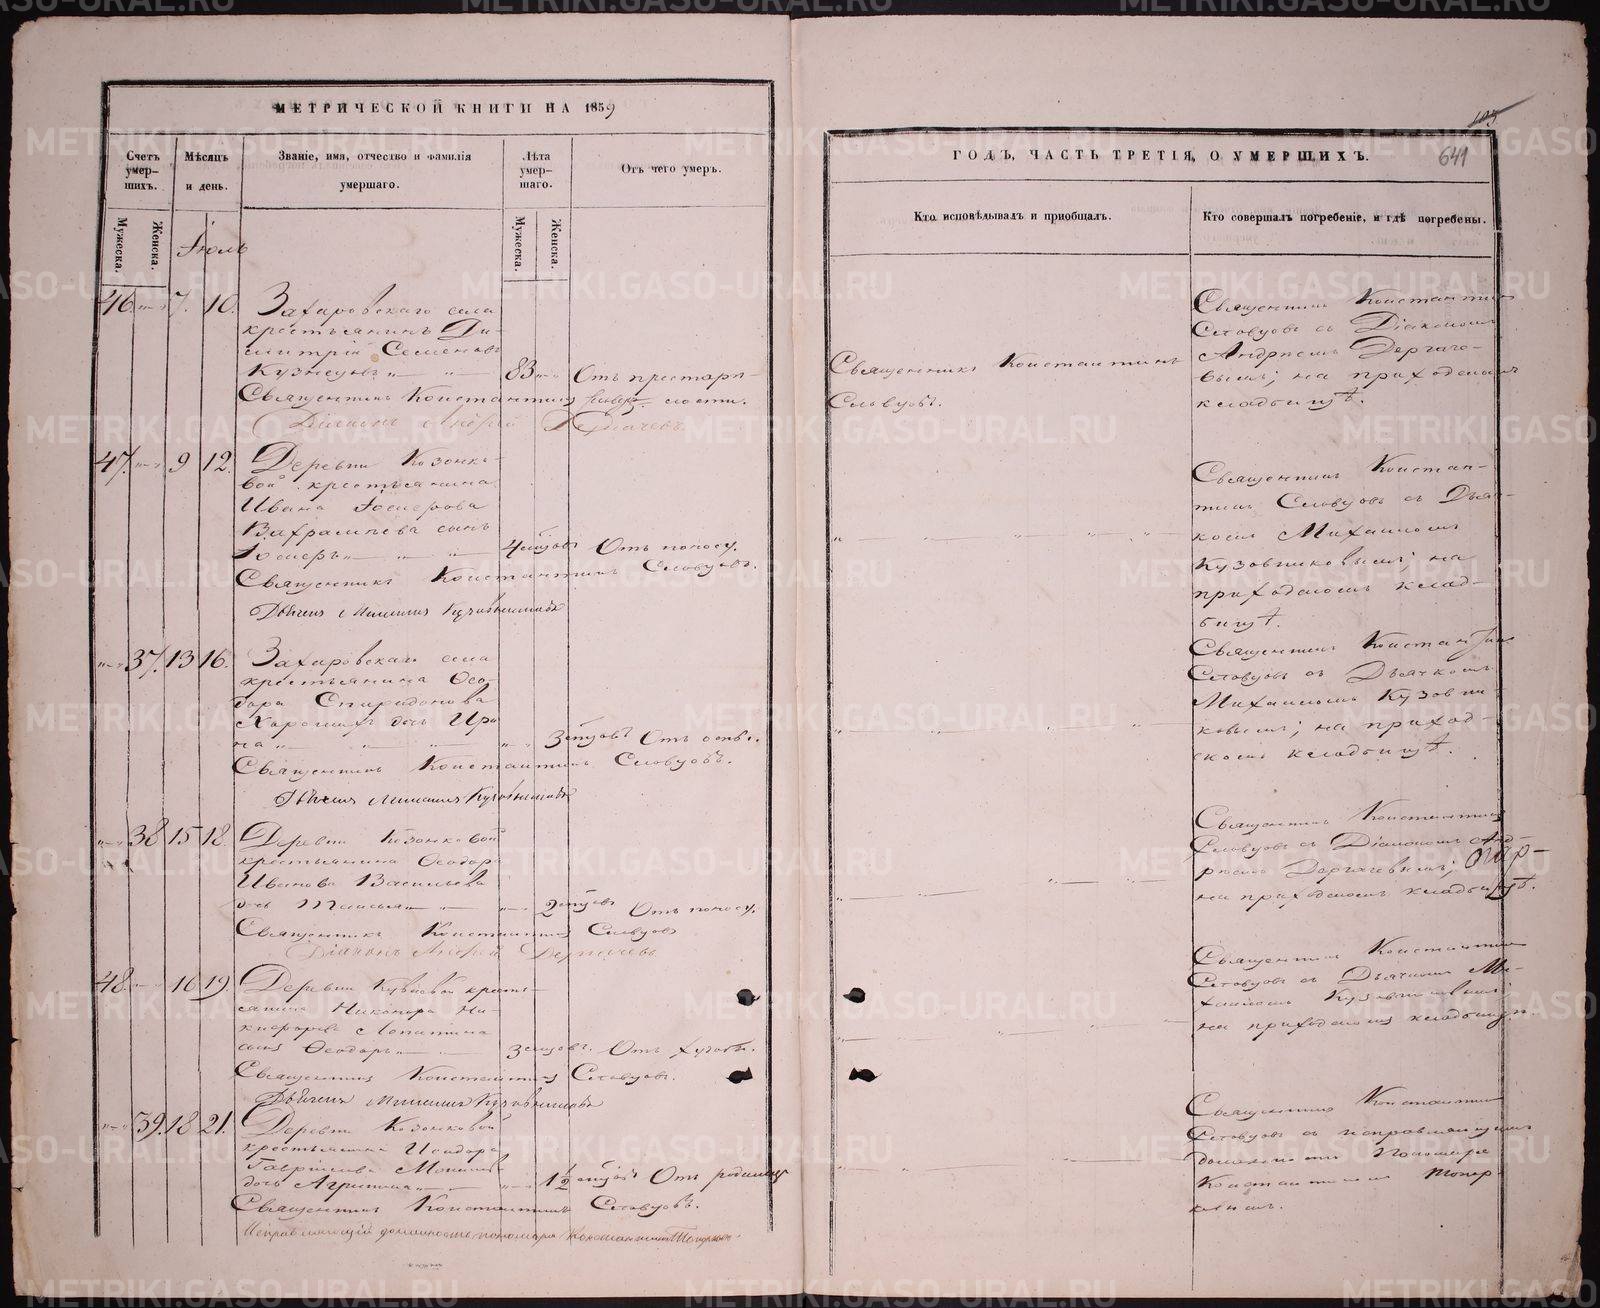 МЕТРИЧЕСКОЙ КНИГИ НА 1859
Счетъ умер-шихъ.
Мѣсяцъ и день.
Званіе, имя, отчество и фамилія умершаго.
Лѣта умер-шаго.
Отъ чего умеръ.
Мужеска.
Женска.
Мужеска.
Женска.
Іюль
46. 7. 10. Захаровскаго села
крестьянинъ Ди-
митрій Семеновъ
Кузнецовъ 83 Отъ престарѣ-
Священникъ Константинъ Словцовъ. лости.
Діаконъ Андрей Дергачевъ
47. 9 12. Деревни Казонко-
вой крестьянина
Ивана
Вахрамѣева сынъ
4 Отъ поносу.
Священникъ Константинъ Словцовъ.
Дьячекъ Михаилъ Кузовниковъ
37. 13 16. Захаровскаго села
крестьянина Ѳео-
дора Спиридонова
дочь Ири-
на 3 Отъ оспы.
Священникъ Константинъ Словцовъ.
Дьячекъ Михаилъ Кузовниковъ
38 15 18. Деревни Казонковой
крестьянина Ѳеодора
Иванова Васильева
дочь 2 Отъ поносу.
Священникъ Константинъ Словцовъ
Діаконъ Андрей Дергачевъ
48 16 19. Деревни кресть-
янина Никанора Ни-
кифорова Лопатина
сынъ Ѳеодоръ 3
Священникъ Константинъ Словцовъ.
Дьячекъ Михаилъ Кузовниковъ
39. 18 21. Деревни Казонковой
крестьянина
Гаврилова
дочь Агрипина 1/2 Отъ родимца
Священникъ Константинъ Словцовъ.
Исправляющій должность пономаря Константинъ Топорковъ
ГОДЪ, ЧАСТЬ ТРЕТІЯ, О УМЕРШИХЪ.
641
Кто исповѣдывалъ и пріобщалъ.
Кто совершалъ погребеніе, и гдѣ погребены.
Священникъ Константинъ
Словцовъ.
Священникъ Константинъ
Словцовъ съ Діакономъ
Андреемъ Дергаче-
вымъ; на приходскомъ
кладбищѣ.
Священникъ Констан-
тинъ Словцовъ съ Дьяч-
комъ Михаиломъ
Кузовниковымъ; на
приходскомъ клад-
бищѣ.
Священникъ Константинъ
Словцовъ съ Дьячкомъ
Михаиломъ Кузовни-
ковымъ; на приход-
скомъ кладбищѣ.
Священникъ Константинъ
Словцовъ съ Діакономъ Анд-
реемъ Дергачевымъ;
на приходскомъ кладбищѣ.
Священникъ Константинъ
Словцовъ съ Дьячкомъ Ми-
хаиломъ Кузовниковымъ;
на приходскомъ кладбищѣ.
Священникъ Константинъ
Словцовъ съ исправляющимъ
должность Пономаря
Константиномъ Топор-
ковымъ.
METRIKI.GASO-URAL.RU